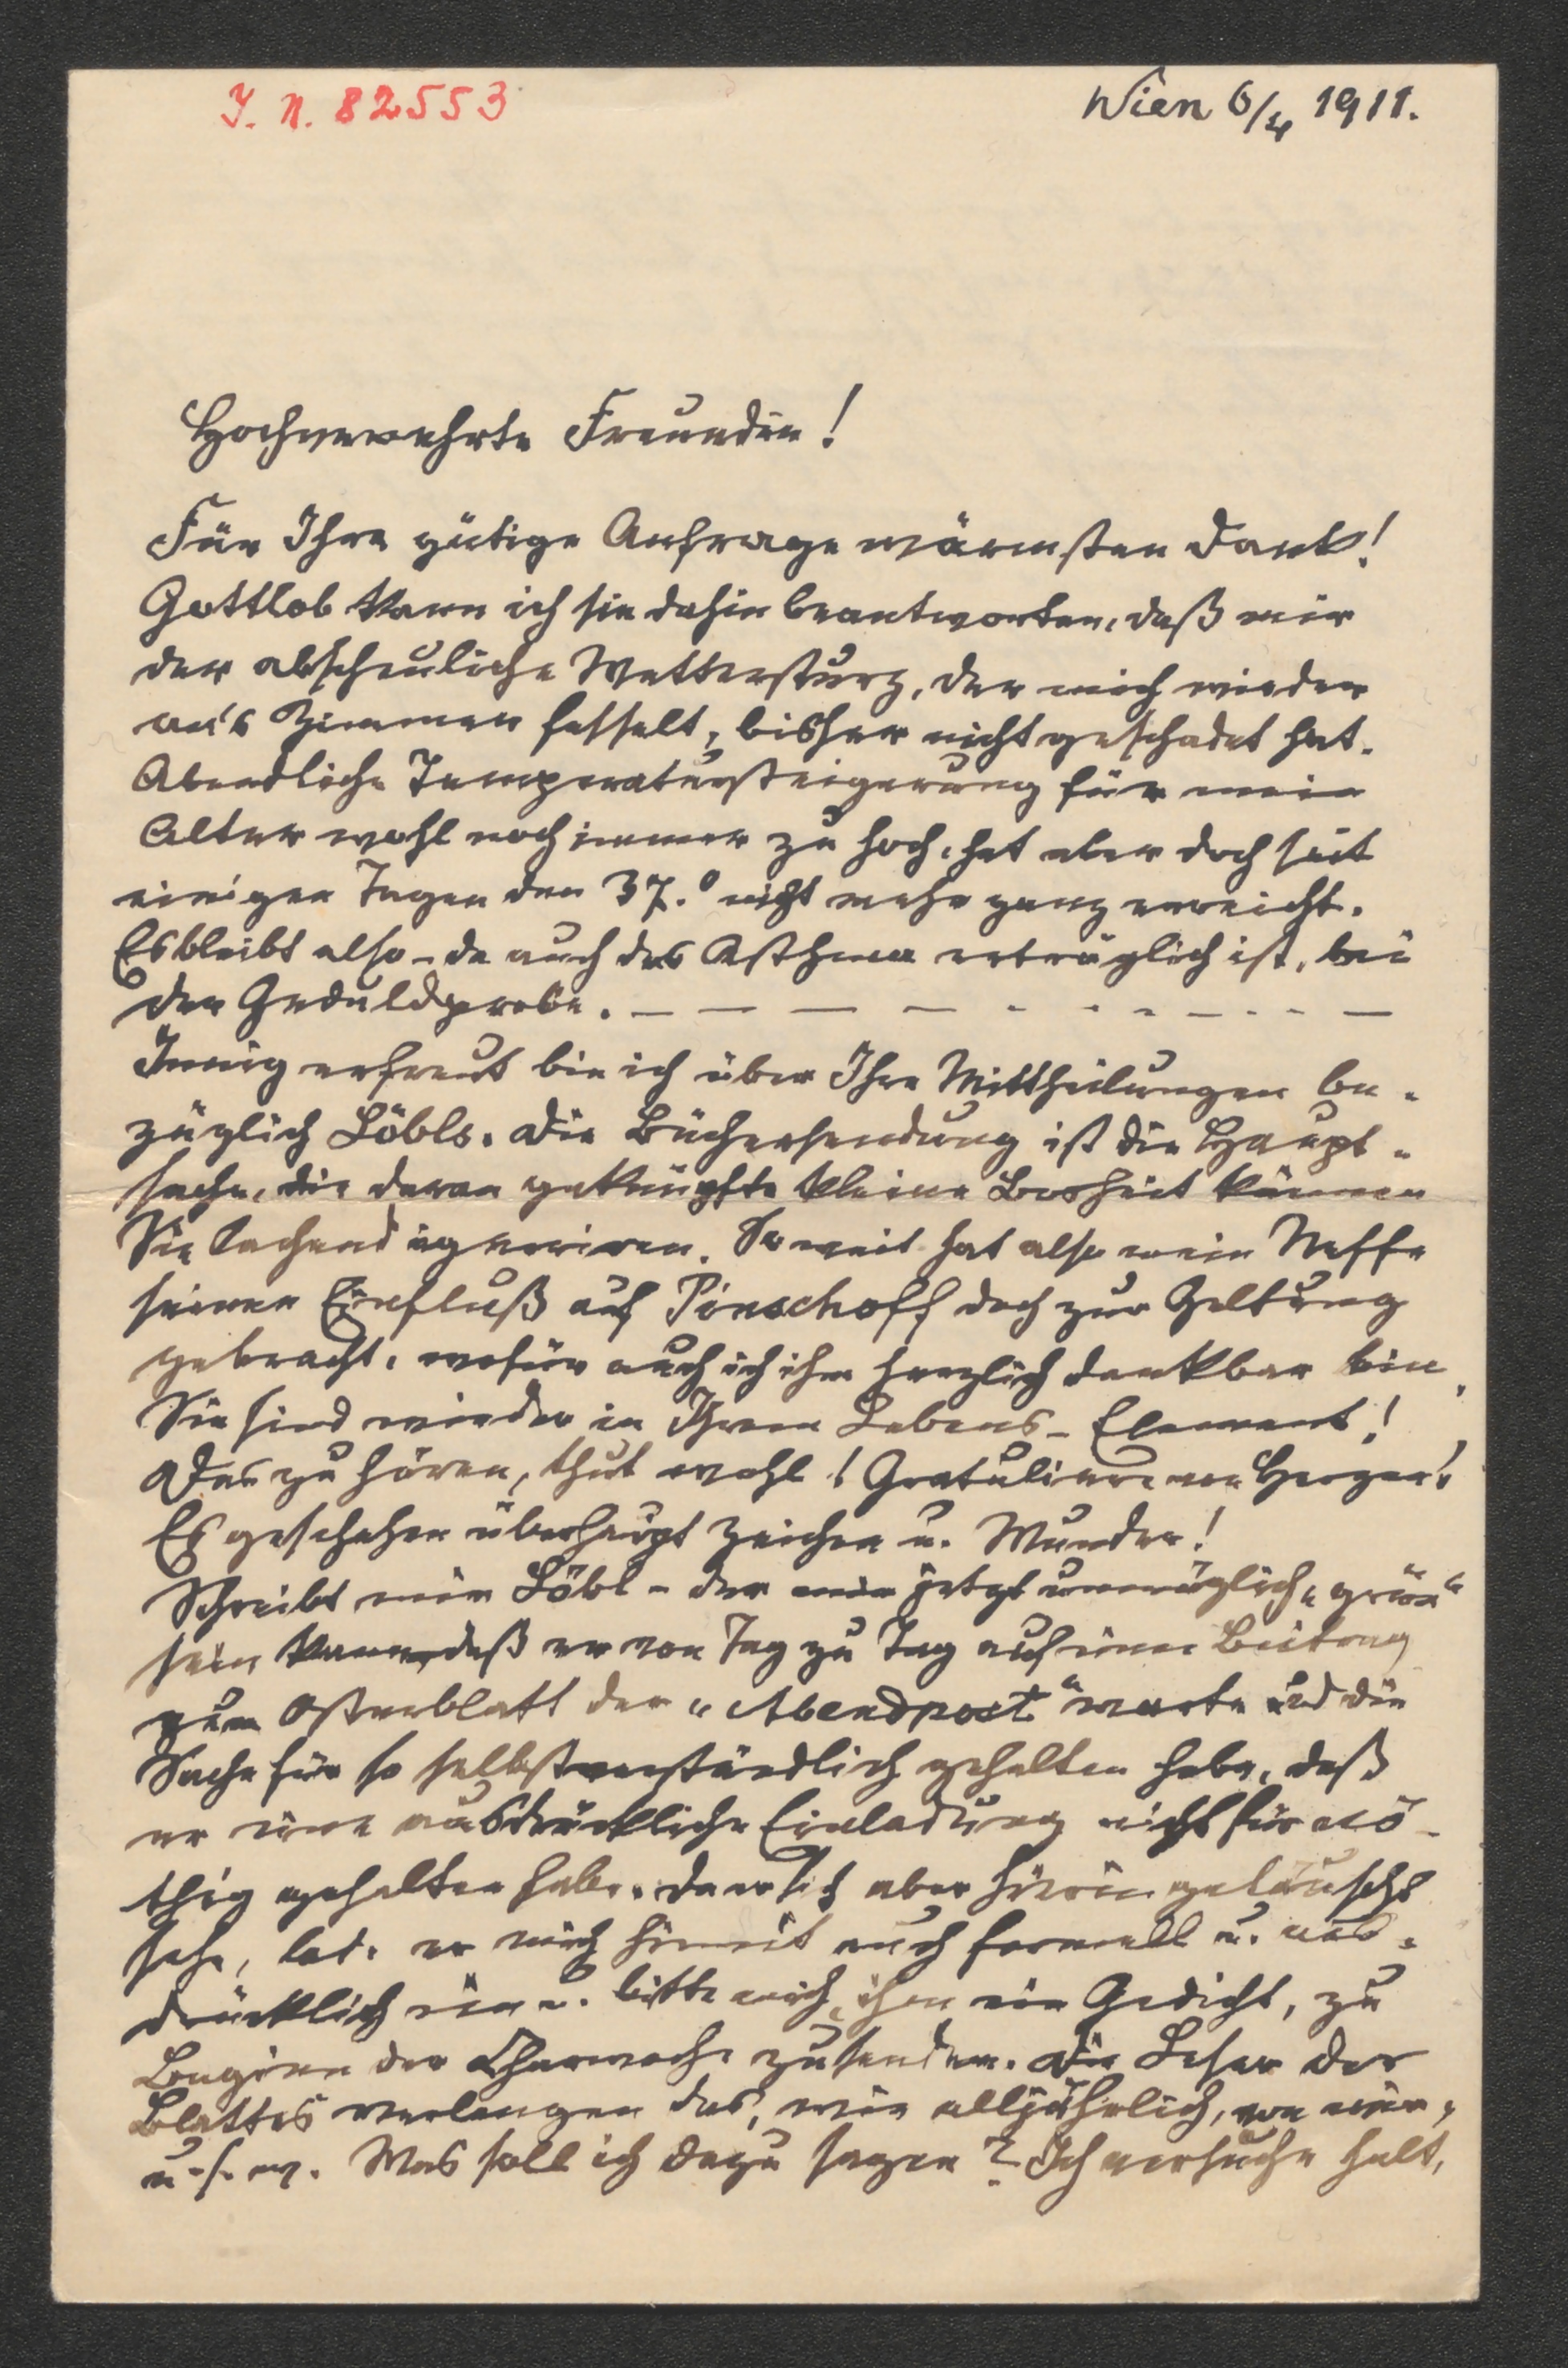 J. N. 82553
Wien 6/4 1911.
Hochverehrte Freundin!
Für Ihre gütige Anfrage wärmsten Dank!
Gottlob kann ich sie dahin beantworten, daß mir
der abscheuliche Wettersturz, der mich wieder
an's Zimmer fesselt, bisher nicht geschadet hat.
Abendliche Temperatursteigerung für mein
Alter wohl noch immer zu hoch, hat aber doch seit
einigen Tagen den 37.° nicht mehr ganz erreicht.
Es bleibt also – da auch das Asthma erträglich ist, bei
der Geduldprobe. – – – – – – – – – – –
Innig erfreut bin ich über Ihre Mittheilungen be-
züglich Löbls. Die Büchersendung ist die Haupt-
sache, die daran geknüpfte kleine Bosheit können
Sie lachend ignoriren. So weit hat also mein Neffe
seinen Einfluß auf Pinschoff doch zur Geltung
gebracht, wofür auch ich ihm herzlich dankbar bin.
Sie sind wieder in Ihrem Lebens-Element!
Das zu hören, thut wohl! Gratuliere von Herzen!
Es geschehen überhaupt Zeichen u. Wunder!
Schreibt mir Löbl – der mir jetzt unmöglich „grün“
sein kann, daß er von Tag zu Tag auf einen Beitrag
zum Osterblatt der „Abendpost“ warte und die
Sache für so selbstverständlich gehalten habe, daß
er eine ausdrückliche Einladung nicht für nö-
thig gehalten habe. Da er sich aber hierin getäuscht
sehe, lade er mich hiemit auch formell u. aus-
drücklich ein u. bitte mich, ihm ein Gedicht, zu
Beginn der Charwoche zusenden. Die Leser des
Blattes verlangen das, wie alljährlich, von mir,
u. s. w. Was soll ich dazu sagen? Ich versuche halt,